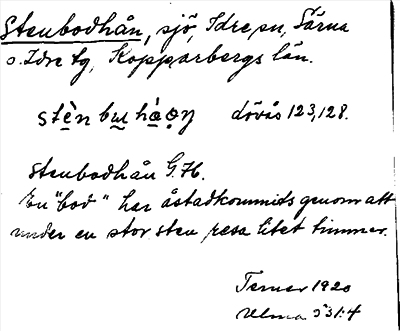 Stenbodhån, sjö, Idre sn, Särna
o. Idre tg, Kopparbergs län.
stèn bu̠ hà̠o̠n dövås 123,128.
Stenbodhån G.H.
En "bod" har åstadkommits genom att
under en stor sten resa litet timmer.
Terner 1920
Ulma 531:4